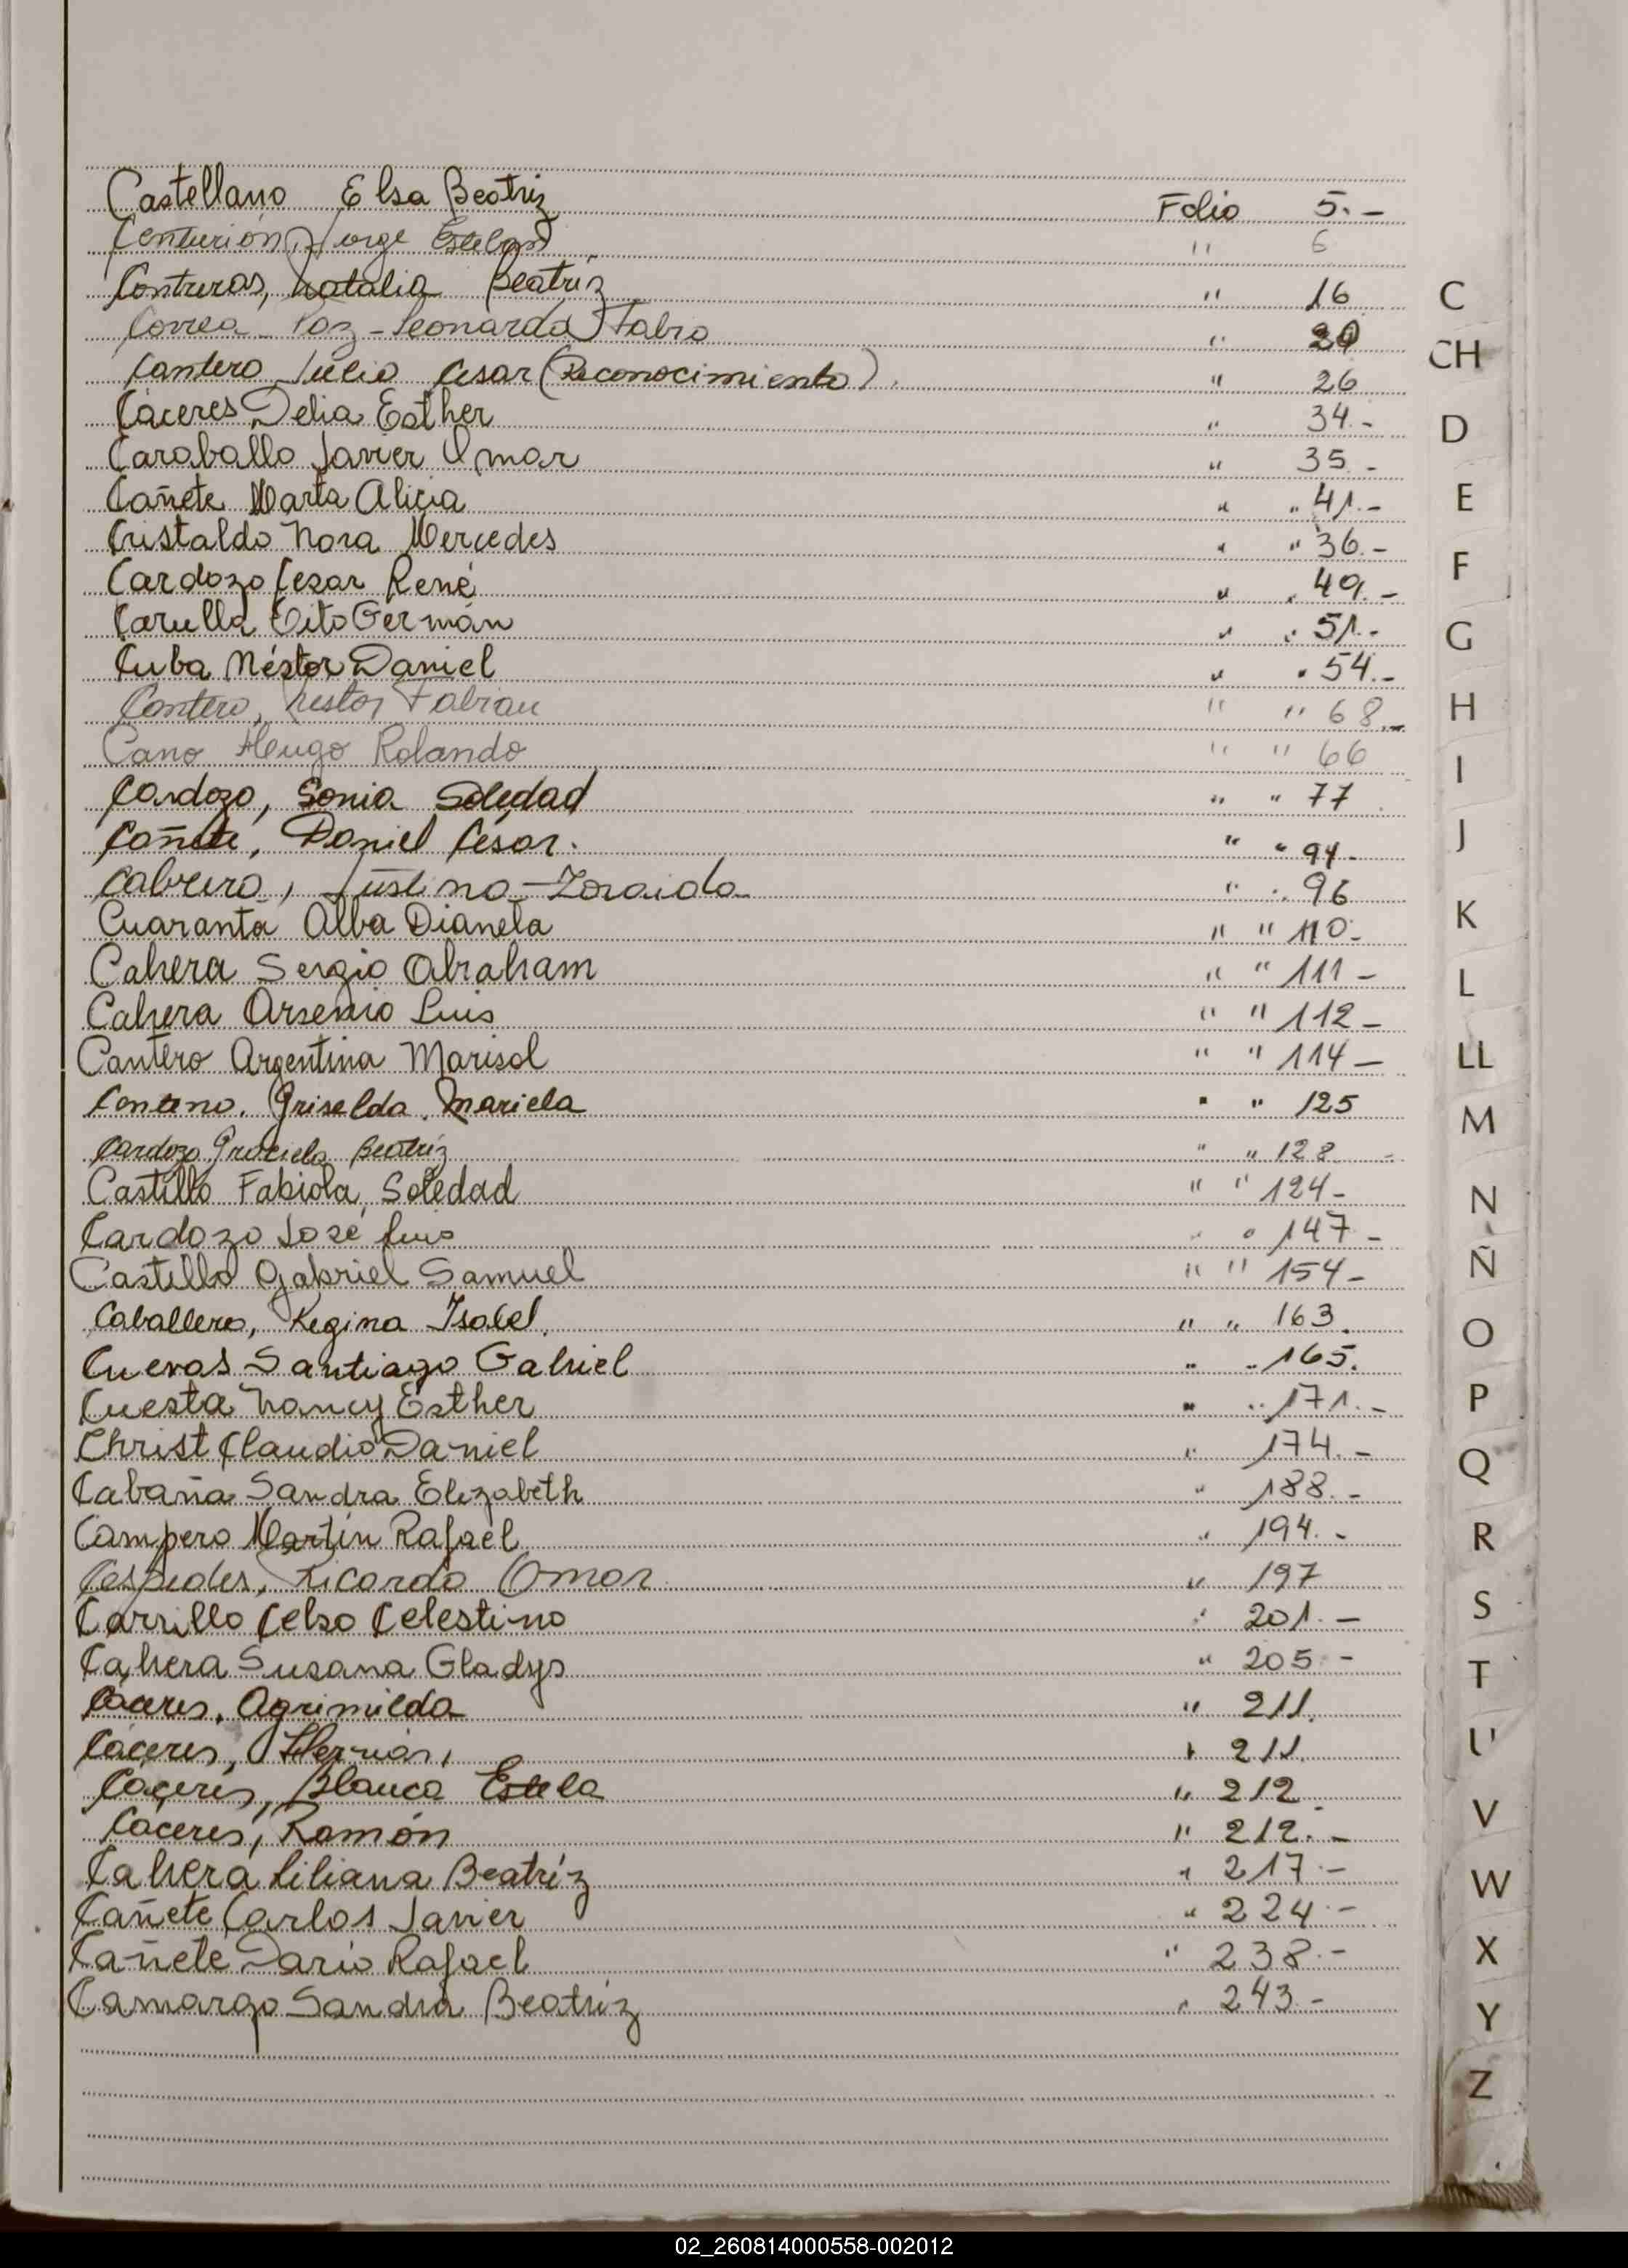 Castellano Elsa Beatriz Folio 5.-
Centurión, Jorge Esteban " 6
Contreras, Natalia Beatriz " 16
Correa Paz - Leonardo Fabio "
Cantero Julio Cesar (Reconocimiento) " 26
Cáceres Delia Esther " 34.-
Caraballo Javier Omar " 35.-
Cañete Marta Alicia " " 41.-
Cristaldo Nora Mercedes " " 36.-
Cardozo Cesar René " " 49.-
Carulla Tito Germán " " 51.-
Cuba Néstor Daniel " " 54.-
Cantero, Nestor Fabian " " 68.-
Cano Hugo Rolando " " 66
Cardozo, Sonia Soledad " " 77
Cañete, Daniel César. " " 94-
Cabrera, Justina-Zoraida " " 96
Cuaranta Alba Dianela " " 110-
Cabrera Sergio Abraham " " 111-
Cabrera Arsenio Luis " " 112-
Cantero Argentina Marisol " " 114-
Centeno, Griselda, Mariela " " 125
Cardozo Graciela Beatriz " " 128 -
Castillo Fabiola, Soledad " " 124-
Cardozo José Luis " " 147-
Castillo Gabriel Samuel " " 154-
Caballero, Regina Isabel. " " 163.
Cuevas Santiago Gabriel " " 165.
Cuesta Nancy Esther " " 171.-
Christ Claudio Daniel " 174.-
Cabaña Sandra Elizabeth " 188.-
Campero Martín Rafael " 194.-
Cespedes, Ricardo Omar " 197
Carrillo Celso Celestino " 201.-
Cabrera Susana Gladys " 205.-
Cáceres, Agrimilda " 211.
Cáceres, Hernán, " 211.
Cáceres, Blanca Estela " 212.
Cáceres, Ramón " 212.-
Cabrera Liliana Beatríz " 217.-
Cañete Carlos Javier " 224.-
Cañete Darío Rafael " 238.-
Camargo Sandra Beatríz " 243-
C
CH
D
E
F
G
H
I
J
K
L
LL
M
N
Ñ
O
P
Q
R
S
T
U
V
W
X
Y
Z
02_260814000558-002012